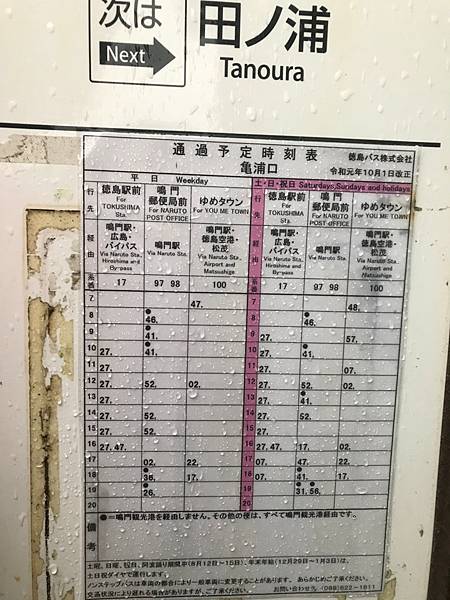 次は
Next
田ノ浦
Tanoura
通過予定時刻表 徳島バス株式会社
亀浦口 令和元年10月1日改正
平日 Weekday 土・日・祝日 Saturdays,Sundays and holidays
行先 徳島駅前 For TOKUSHIMA Sta. 鳴門郵便局前 For NARUTO POST OFFICE ゆめタウン For YOU ME TOWN 行先 徳島駅前 For TOKUSHIMA Sta. 鳴門郵便局前 For NARUTO POST OFFICE ゆめタウン For YOU ME TOWN
経由 鳴門駅・広島・バイパス Via Naruto Sta. Hiroshima and By-pass 鳴門駅 Via Naruto Sta. 鳴門駅・徳島空港・松茂 Via Naruto Sta. Airport and Matsushige 経由 鳴門駅・広島・バイパス Via Naruto Sta. Hiroshima and By-pass 鳴門駅 Via Naruto Sta. 鳴門駅・徳島空港・松茂 Via Naruto Sta. Airport and Matsushige
系番 17 97 98 100 系番 17 97 98 100
7 47. 7 48.
8 ●46. 8 ●46.
9 ●41. 9 27. 57.
10 27. ●41. 10 27. ●41.
11 27. 11 27. 07.
12 27. 52. 02. 12 27. 52. 02.
13 27. 13 27. ●41.
14 27. 52. 14 27. 52.
15 27. 15 27.
16 27. 47. 16 27. 47. 17. 02.
17 02. 22. 17 07. 47. 22.
18 ●36. 17. 18 07. ●41. 17.
19 ●26. 19 ●31. ●56.
20 20
備考 ●=鳴門観光港を経由しません。その他の便は、すべて鳴門観光港経由です。
土曜、日曜、祝日、阿波踊り期間中(8月12日～15日)、年末年始(12月29日～1月3日)は、
土日祝ダイヤで運行します。
ノンステップバスは車両の都合により一般車両に変更することがあります。あらかじめご了承ください。
交通状況により遅れる場合がありますが、ご了承ください。 お問い合わせ先.(088)622-1811